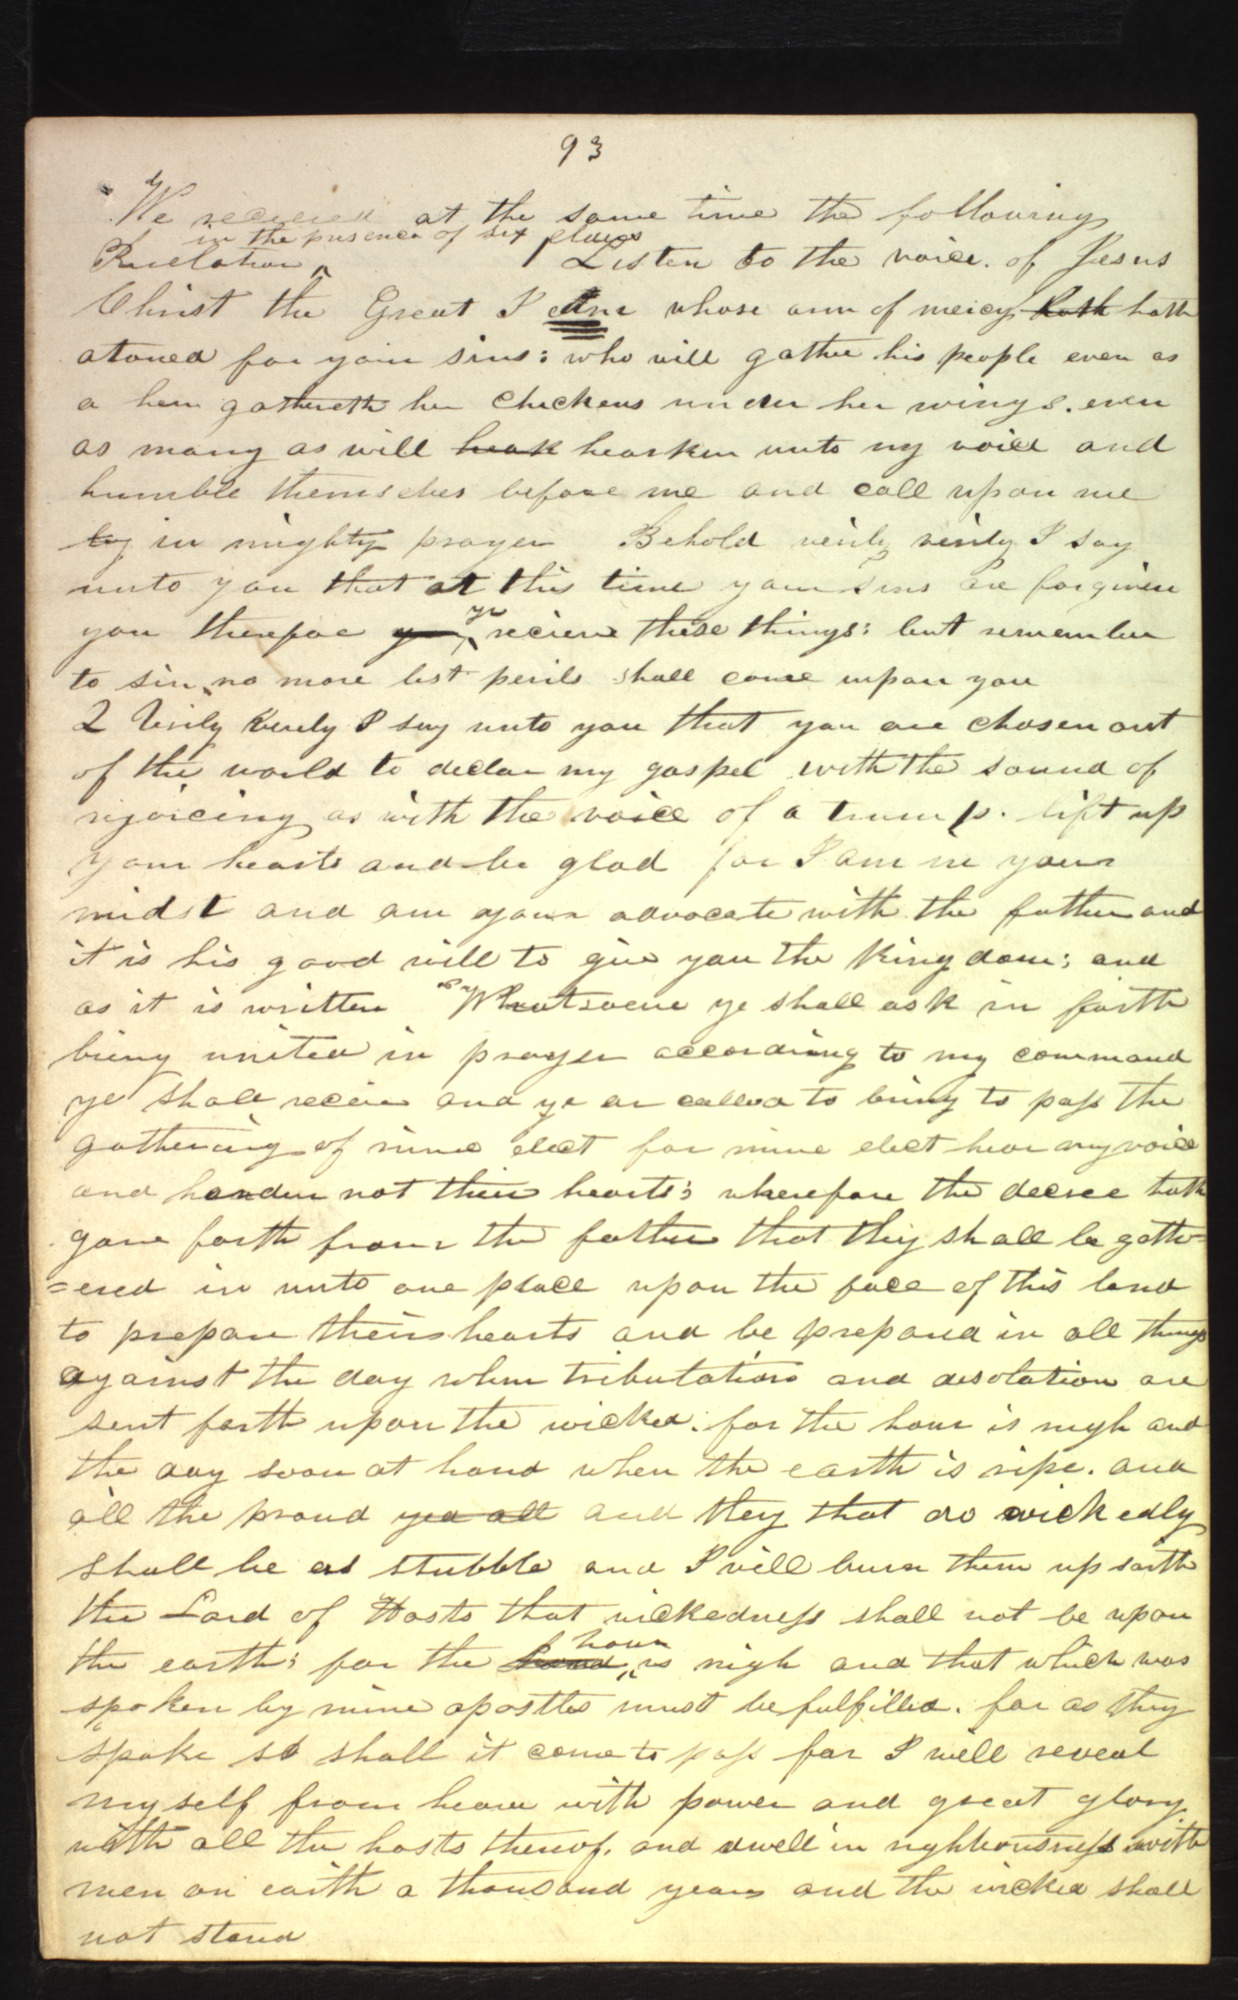 93
We recieved at the same time the following
in the presence of six elders
Revelation Listen to the voice. of Jesus
Christ the Great I Am whose arm of mercy hath hath
atoned for your sins: who will gather his people even as
a hen gathereth her chickens under her wings. even
as many as will heak hearken unto my voice and
humble themselves before me and call upon me
by in mighty prayer Behold verily verily I say
unto you that at this time your sins are forgiven
you therefore ye recieve these things: but remember
to sin no more lest perils shall come upon you
2 Verily verily I say unto you that you are chosen out
of the world to declare my gospel with the sound of
rejoicing as with the voice of a trump. lift up
your hearts and be glad for I am in your
midst and am your advocate with the father and
it is his good will to give you the Kingdom; and
as it is written "Whatsoever ye shall ask in faith
being united in prayer according to my command
ye shall recieve and ye are called to bring to pass the
gathering of mine elect for mine elect hear my voice
and harden not their hearts; wherefore the decree hath
gone forth from the father that they shall be gath-
=ered in unto one place upon the face of this land
to prepare their hearts and be prepared in all things
against the day when tribulation and desolation are
sent forth upon the wicked: for the hour is nigh and
the day soon at hand when the earth is ripe. and
all the proud yea all and they that do wickedly
shall be as stubble and I will burn them up saith
the Lord of Hosts that wickedness shall not be upon
hour
the earth; for the is nigh and that which was
spoken by mine apostles must be fulfilled. for as they
spoke so shall it come to pass for I will reveal
myself from heaven with power and great glory
with all the hosts thereof. and dwell in righteousness with
men on earth a thousand years and the wicked shall
not stand